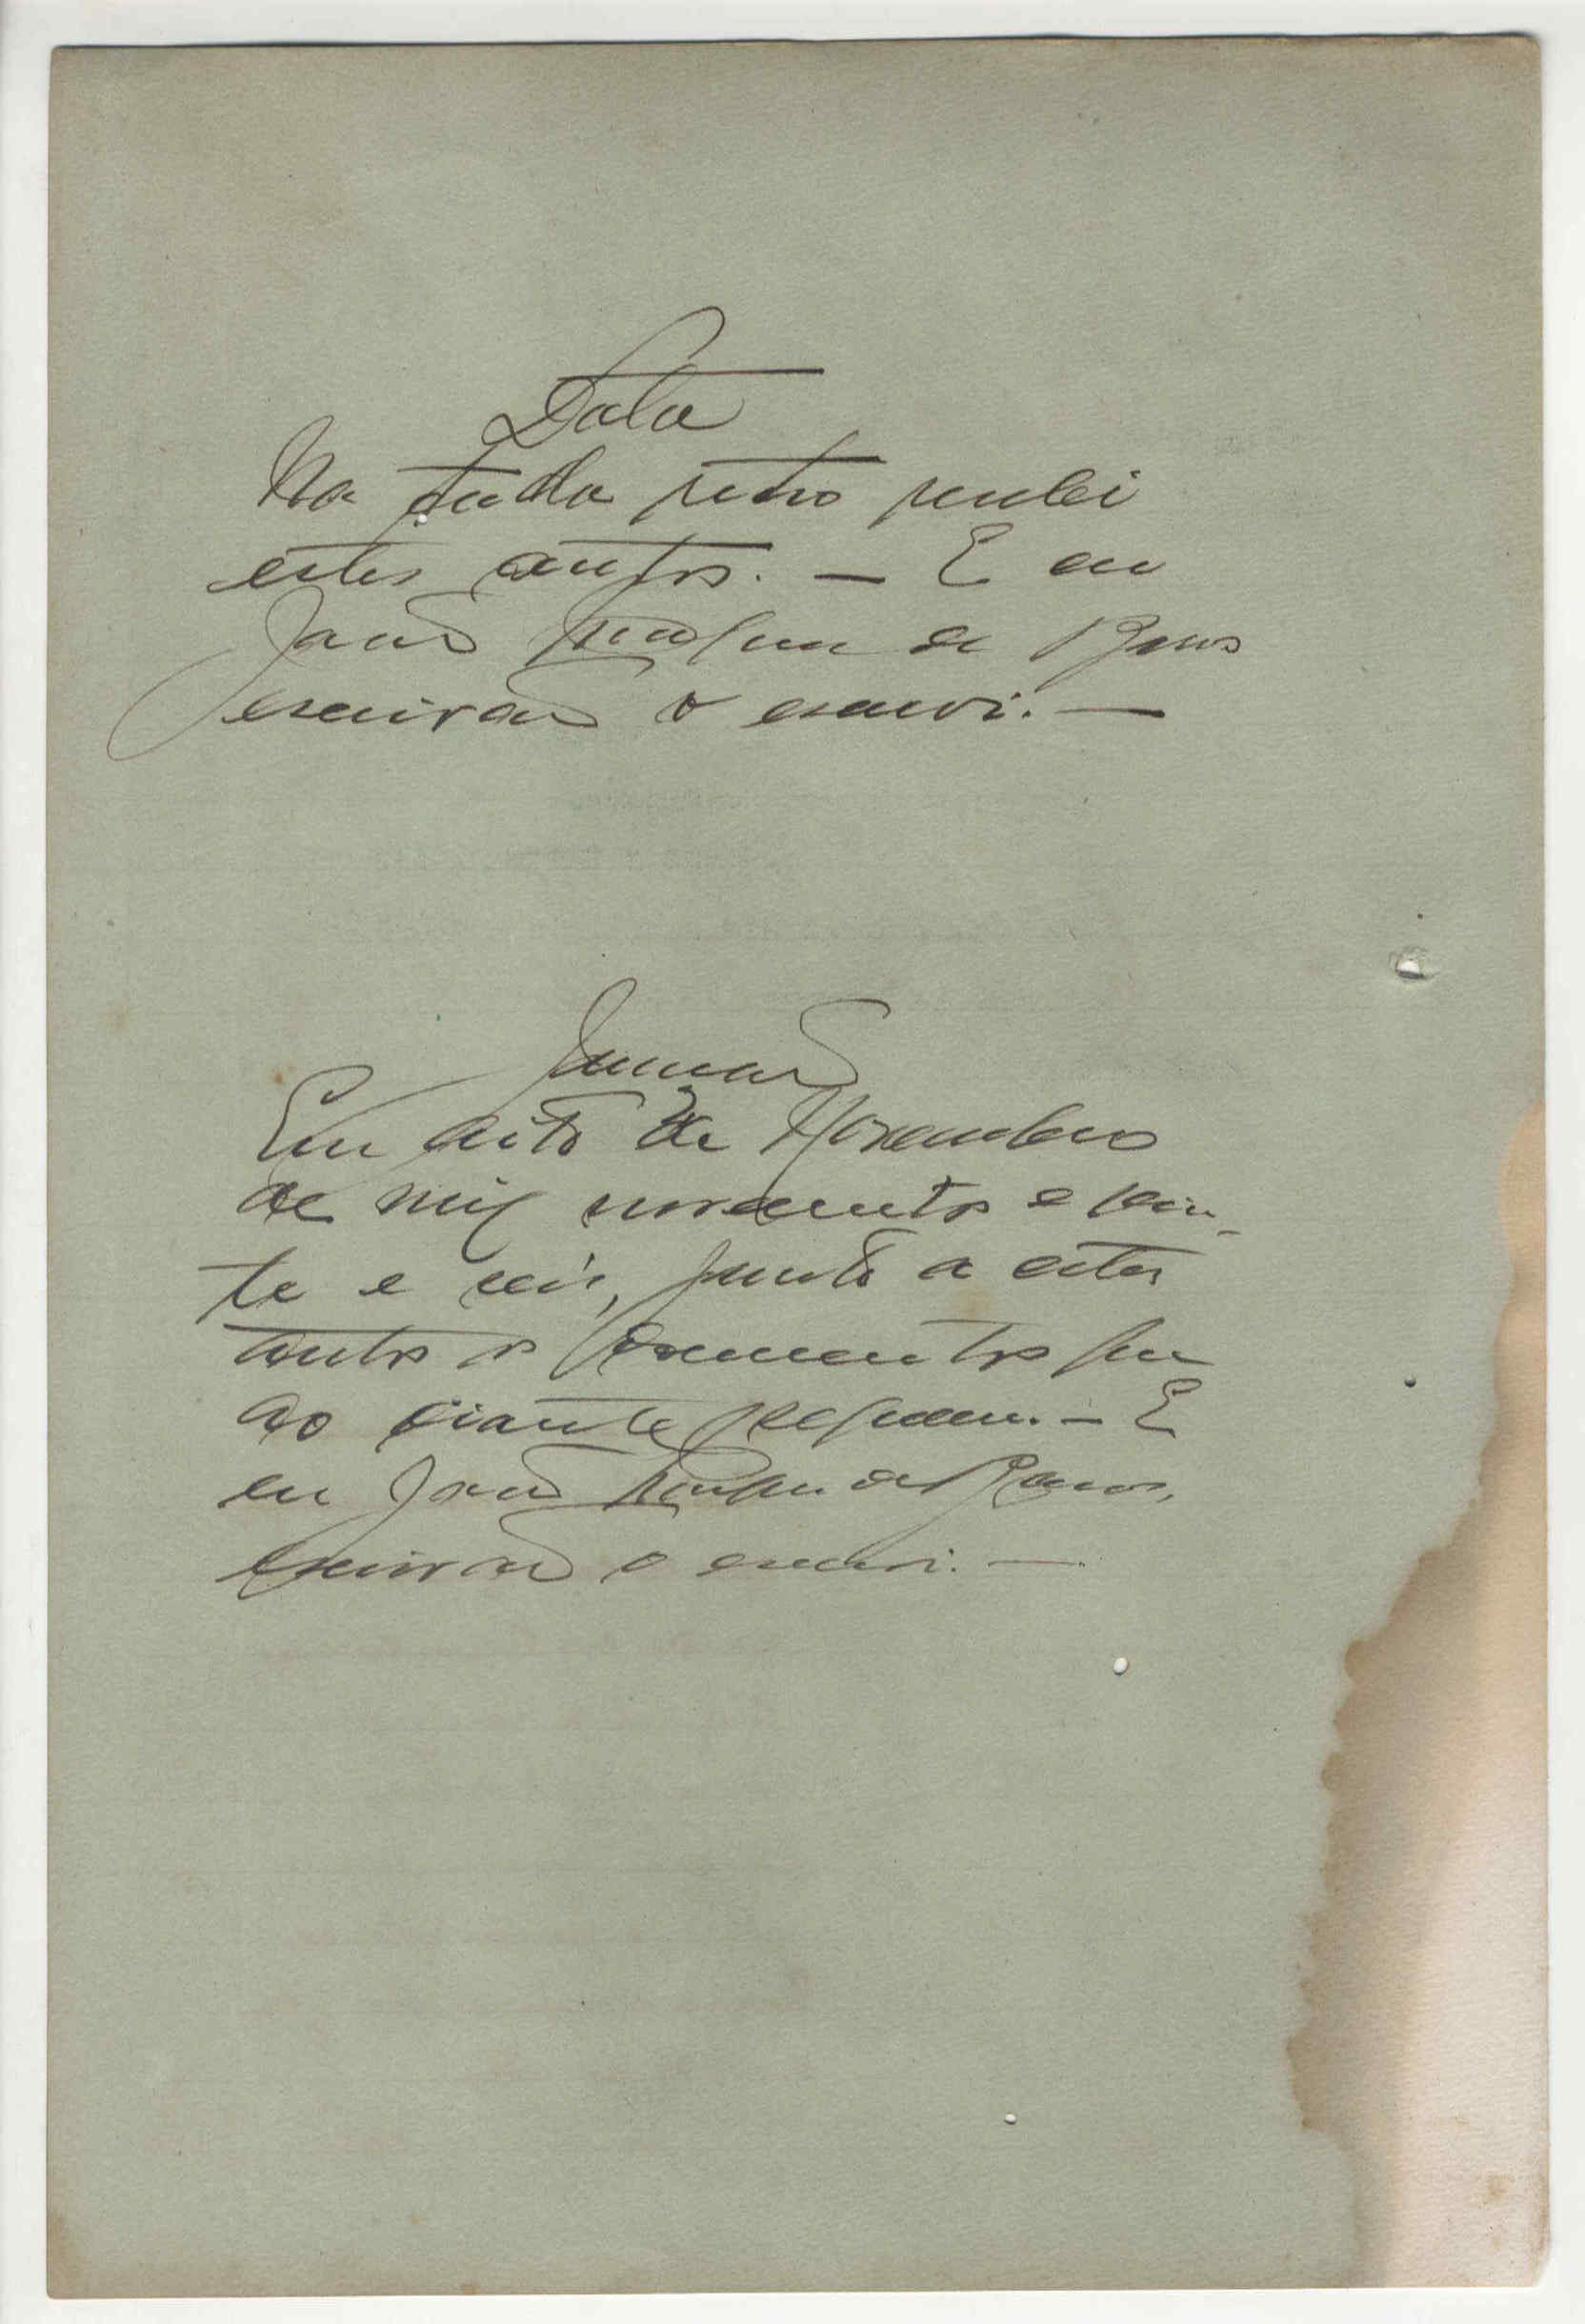 Data
Na data retro recebi
estes autos. — E eu
João de Barros
escrivão o escrevi. —
Juncção
Em oito de Novembro
de mil novecentos e vin-
te e seis, junto a estes
autos os documentos que
ao diante seguem. — E
eu João de Barros,
escrivão o escrevi. —